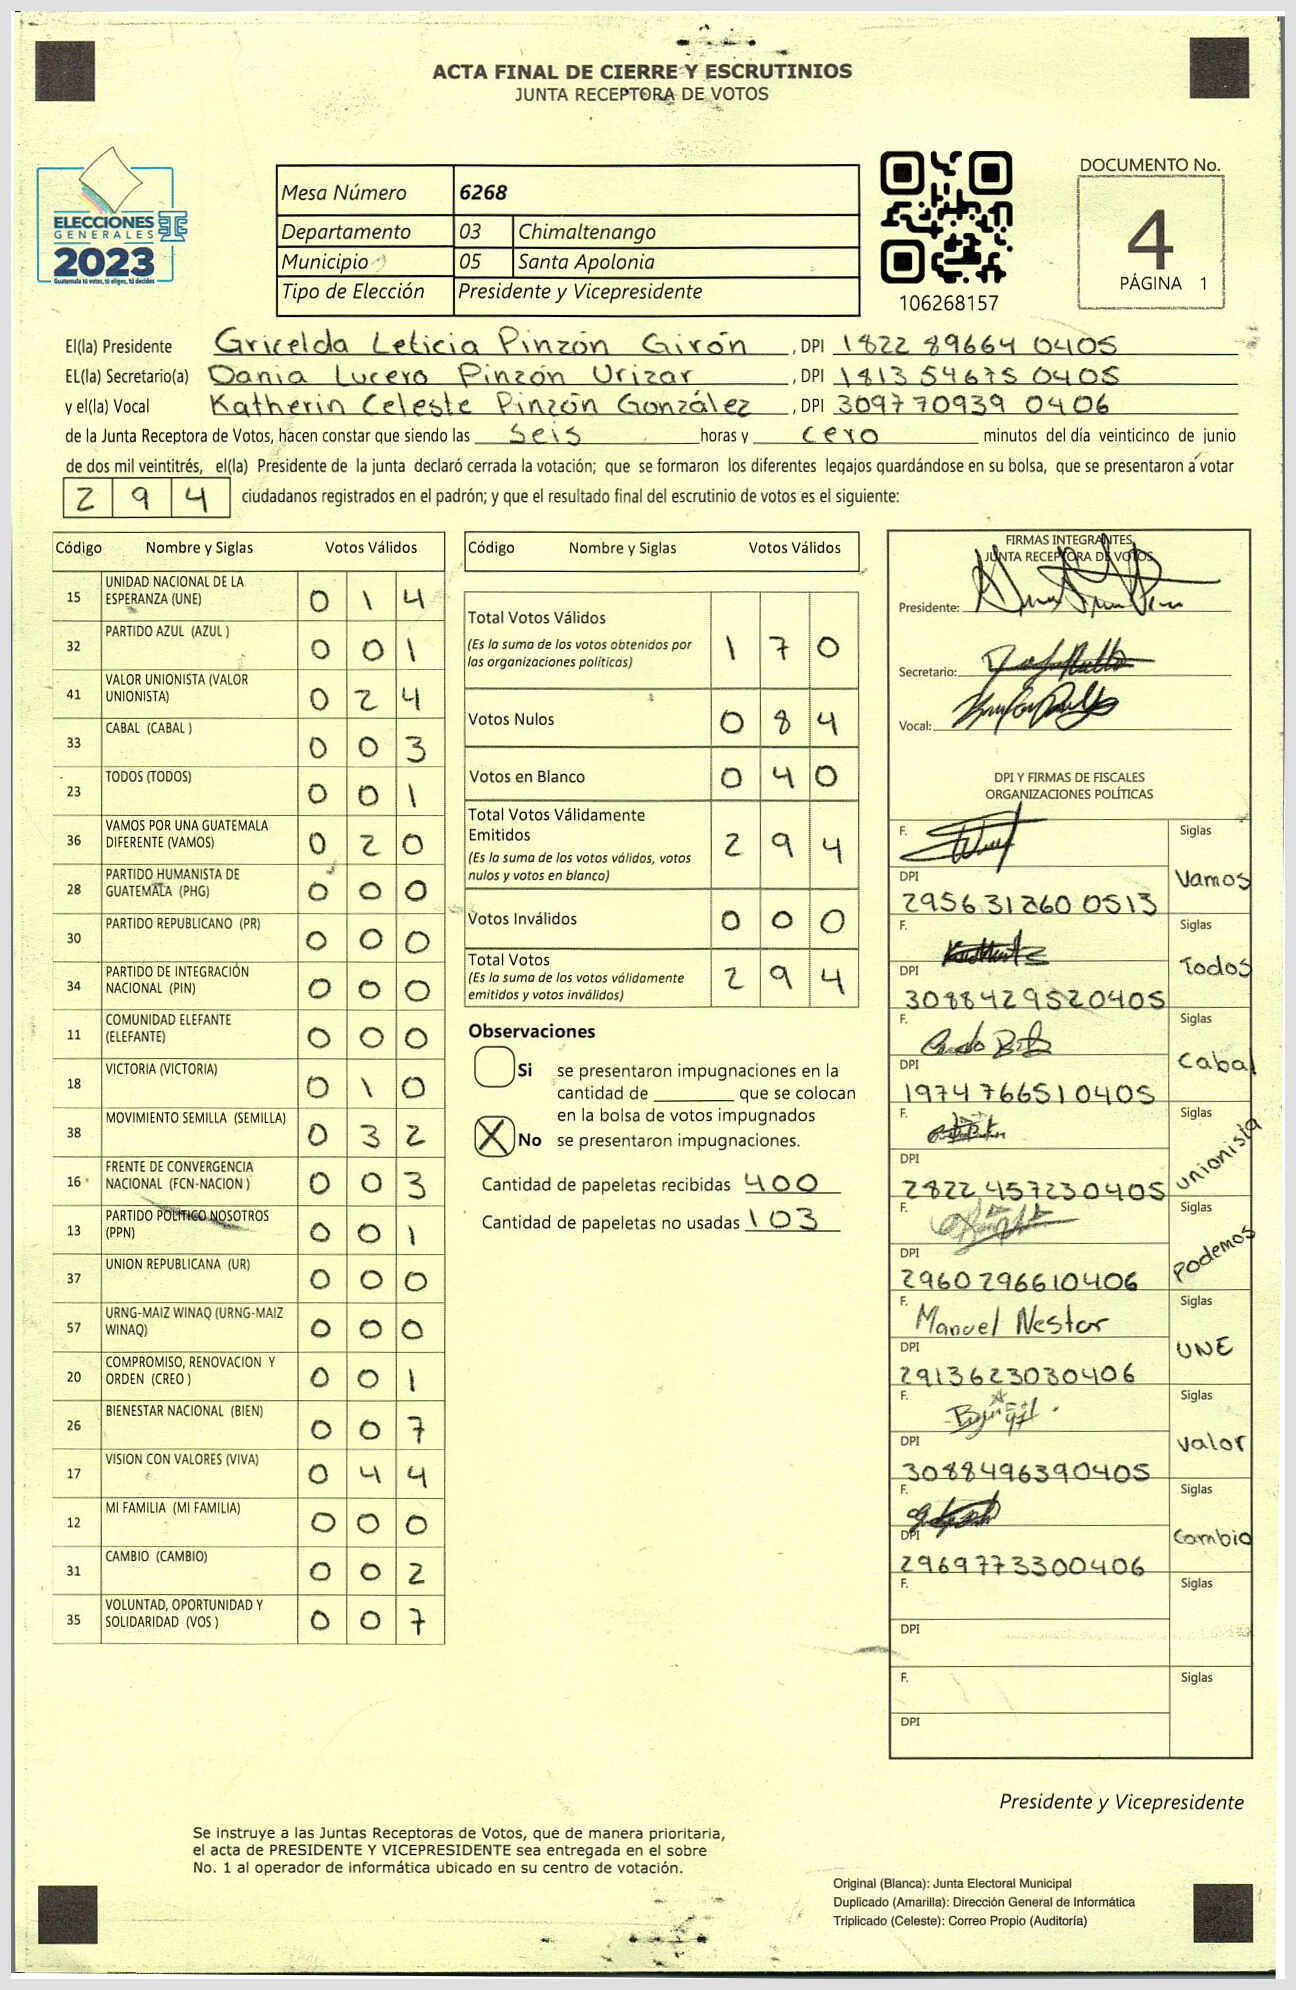 ACTA FINAL DE CIERRE Y ESCRUTINIOS
JUNTA RECEPTORA DE VOTOS
ELECCIONES
GENERALES
2023
Guatemala tú votas, tú eliges, tú decides
Mesa Número 6268
Departamento 03 Chimaltenango
Municipio 05 Santa Apolonia
Tipo de Elección Presidente y Vicepresidente
106268157
DOCUMENTO No.
4
PÁGINA 1
El(la) Presidente Gricelda Leticia Pinzón Girón, DPI 1822 89664 0405
EL(la) Secretario(a) Dania Lucero Pinzón Urizar, DPI 1813 54675 0405
y el(la) Vocal Katherin Celeste Pinzón González, DPI 309770939 0406
de la Junta Receptora de Votos, hacen constar que siendo las seis horas y cero minutos del día veinticinco de junio
de dos mil veintitrés, el(la) Presidente de la junta declaró cerrada la votación; que se formaron los diferentes legajos guardándose en su bolsa, que se presentaron a votar
2 9 4 ciudadanos registrados en el padrón; y que el resultado final del escrutinio de votos es el siguiente:
Código Nombre y Siglas Votos Válidos
15 UNIDAD NACIONAL DE LA ESPERANZA (UNE) 0 1 4
32 PARTIDO AZUL (AZUL ) 0 0 1
41 VALOR UNIONISTA (VALOR UNIONISTA) 0 2 4
33 CABAL (CABAL ) 0 0 3
23 TODOS (TODOS) 0 0 1
36 VAMOS POR UNA GUATEMALA DIFERENTE (VAMOS) 0 2 0
28 PARTIDO HUMANISTA DE GUATEMALA (PHG) 0 0 0
30 PARTIDO REPUBLICANO (PR) 0 0 0
34 PARTIDO DE INTEGRACIÓN NACIONAL (PIN) 0 0 0
11 COMUNIDAD ELEFANTE (ELEFANTE) 0 0 0
18 VICTORIA (VICTORIA) 0 1 0
38 MOVIMIENTO SEMILLA (SEMILLA) 0 3 2
16 FRENTE DE CONVERGENCIA NACIONAL (FCN-NACION ) 0 0 3
13 PARTIDO POLITICO NOSOTROS (PPN) 0 0 1
37 UNION REPUBLICANA (UR) 0 0 0
57 URNG-MAIZ WINAQ (URNG-MAIZ WINAQ) 0 0 0
20 COMPROMISO, RENOVACION Y ORDEN (CREO ) 0 0 1
26 BIENESTAR NACIONAL (BIEN) 0 0 7
17 VISION CON VALORES (VIVA) 0 4 4
12 MI FAMILIA (MI FAMILIA) 0 0 0
31 CAMBIO (CAMBIO) 0 0 2
35 VOLUNTAD, OPORTUNIDAD Y SOLIDARIDAD (VOS ) 0 0 7
Código Nombre y Siglas Votos Válidos
Total Votos Válidos 1 7 0
(Es la suma de los votos obtenidos por
las organizaciones políticas)
Votos Nulos 0 8 4
Votos en Blanco 0 4 0
Total Votos Válidamente
Emitidos 2 9 4
(Es la suma de los votos válidos, votos
nulos y votos en blanco)
Votos Inválidos 0 0 0
Total Votos 2 9 4
(Es la suma de los votos válidamente
emitidos y votos inválidos)
Observaciones
Si se presentaron impugnaciones en la
cantidad de ________ que se colocan
en la bolsa de votos impugnados
X No se presentaron impugnaciones.
Cantidad de papeletas recibidas 400
Cantidad de papeletas no usadas 103
FIRMAS INTEGRANTES
JUNTA RECEPTORA DE VOTOS
Presidente:
Secretario:
Vocal:
DPI Y FIRMAS DE FISCALES
ORGANIZACIONES POLÍTICAS
F. Siglas
DPI Vamos
2956 31260 0513
F. Siglas
DPI Todos
3088429520405
F. Siglas
DPI Cabal
1974 766510405
F. Siglas
DPI unionista
2822 457230405
F. Siglas
DPI podemos
2960296610406
F. Manuel Nestor Siglas
DPI UNE
2913623030406
F. Siglas
DPI valor
3088496390405
F. Siglas
DPI Cambio
2969773300406
F. Siglas
DPI
F. Siglas
DPI
Presidente y Vicepresidente
Se instruye a las Juntas Receptoras de Votos, que de manera prioritaria,
el acta de PRESIDENTE Y VICEPRESIDENTE sea entregada en el sobre
No. 1 al operador de informática ubicado en su centro de votación.
Original (Blanca): Junta Electoral Municipal
Duplicado (Amarilla): Dirección General de Informática
Triplicado (Celeste): Correo Propio (Auditoría)